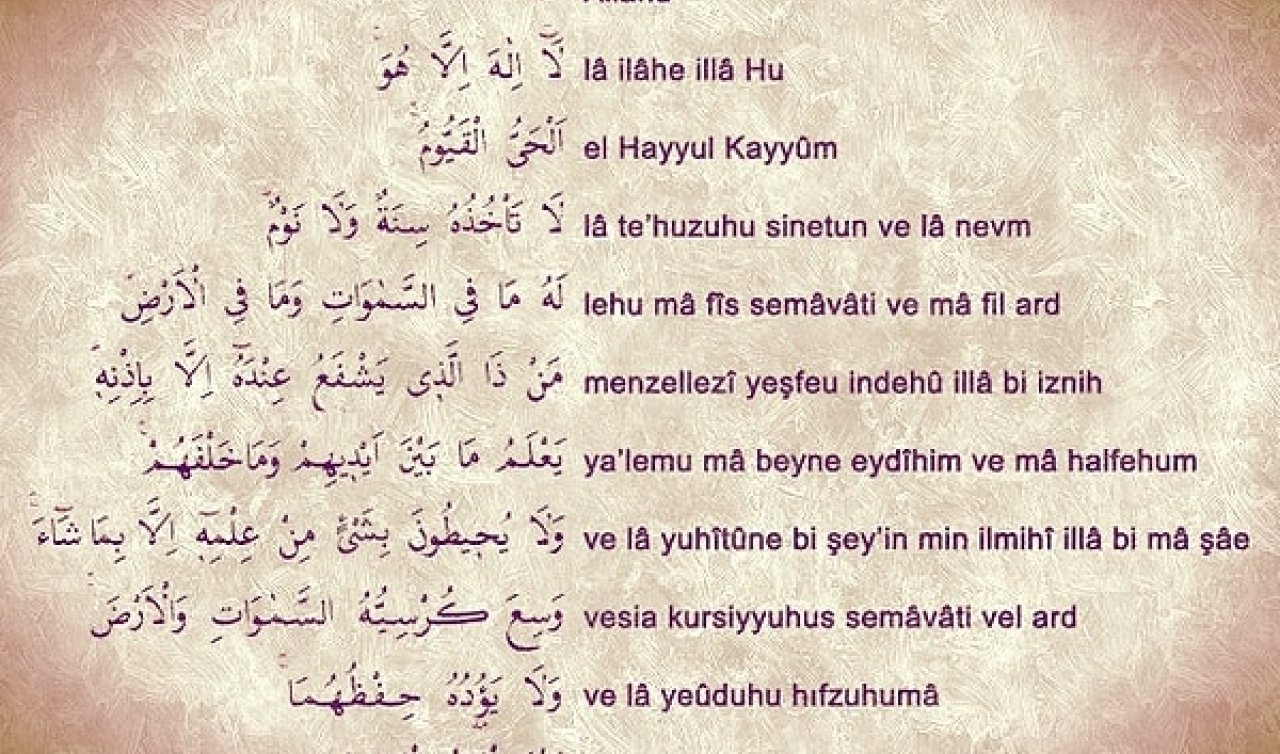 لَٓا اِلٰهَ اِلَّا هُوَۚ lâ ilâhe illâ Hu
اَلْحَيُّ الْقَيُّومُۚ el Hayyul Kayyûm
لَا تَأْخُذُهُ سِنَةٌ وَلَا نَوْمٌۜ lâ te’huzuhu sinetun ve lâ nevm
لَهُ مَا فِي السَّمٰوَاتِ وَمَا فِي الْاَرْضِۜ lehu mâ fîs semâvâti ve mâ fil ard
مَنْ ذَا الَّذٖي يَشْفَعُ عِنْدَهُٓ اِلَّا بِاِذْنِهٖۜ menzellezî yeşfeu indehû illâ bi iznih
يَعْلَمُ مَا بَيْنَ اَيْدٖيهِمْ وَمَا خَلْفَهُمْۚ ya’lemu mâ beyne eydîhim ve mâ halfehum
وَلَا يُحٖيطُونَ بِشَيْءٍ مِنْ عِلْمِهٖٓ اِلَّا بِمَا شَٓاءَۚ ve lâ yuhîtûne bi şey’in min ilmihî illâ bi mâ şâe
وَسِعَ كُرْسِيُّهُ السَّمٰوَاتِ وَالْاَرْضَۚ vesia kursiyyuhus semâvâti vel ard
وَلَا يَؤُ۫دُهُ حِفْظُهُمَاۚ ve lâ yeûduhu hıfzuhumâ